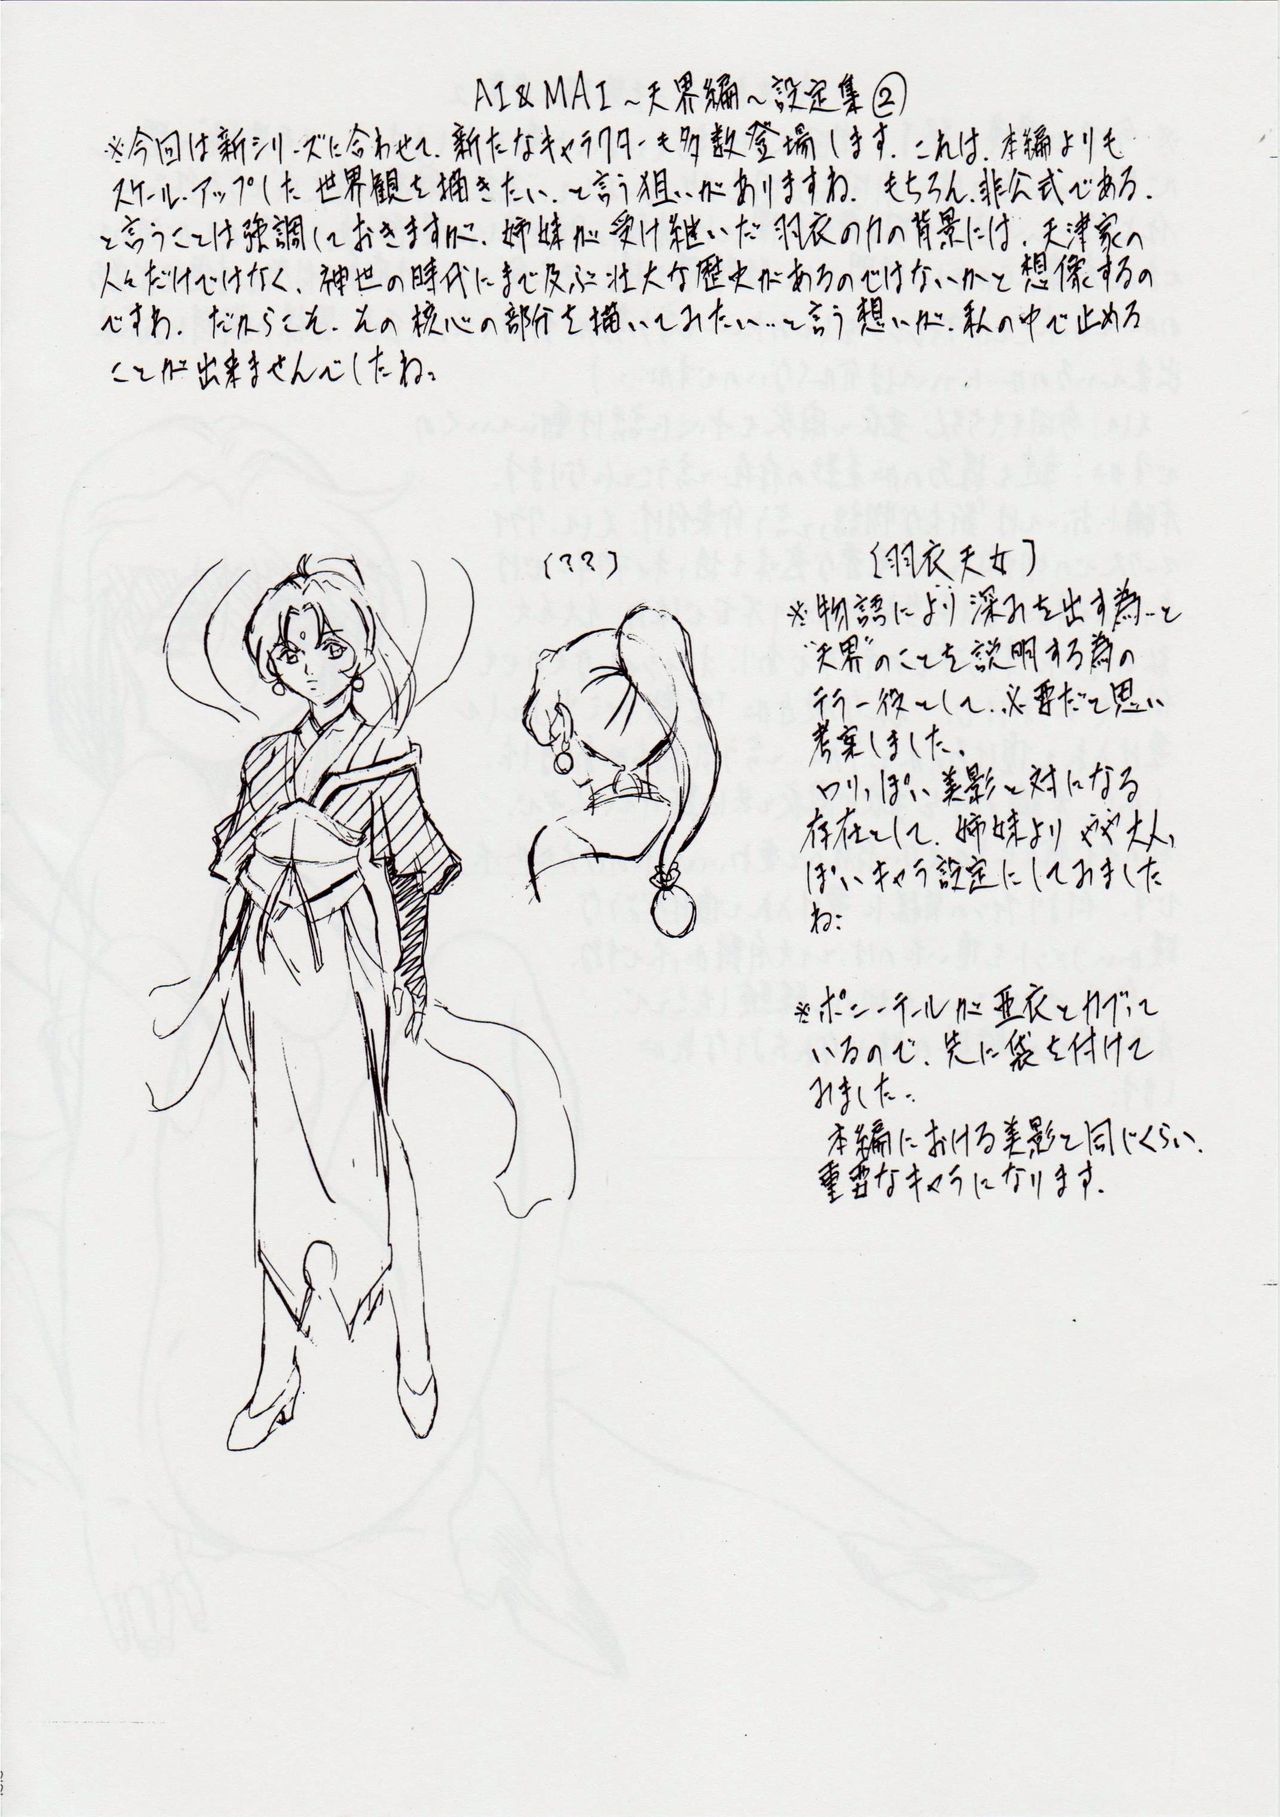 AI&MAI～天界編～設定集②
※今回は新シリーズに合わせて、新たなキャラクターも多数登場します。これは、本編よりも
スケール・アップした世界観を描きたい、と言う狙いがありますね。もちろん、非公式である、
と言うことは強調しておきますが、姉妹が受け継いだ羽衣の力の背景には、天津家の
人々だけではなく、神世の時代にまで及ぶ壮大な歴史があるのではないかと想像するの
ですわ。だからこそ、その核心の部分を描いてみたい‥と言う想いが、私の中で止める
ことが出来ませんでしたね。
(??)
[羽衣天女]
※物語により深みを出す為‥と
"天界"のことを説明する為の
テラー役として、必要だと思い
考案しました。
ロリっぽい美影と対になる
存在として、姉妹よりやや大人っ
ぽいキャラ設定にしてみました
ね。
※ポニーテールが亜衣とカブって
いるので、先に袋を付けて
みました‥
本編における美影と同じくらい、
重要なキャラになります。
22